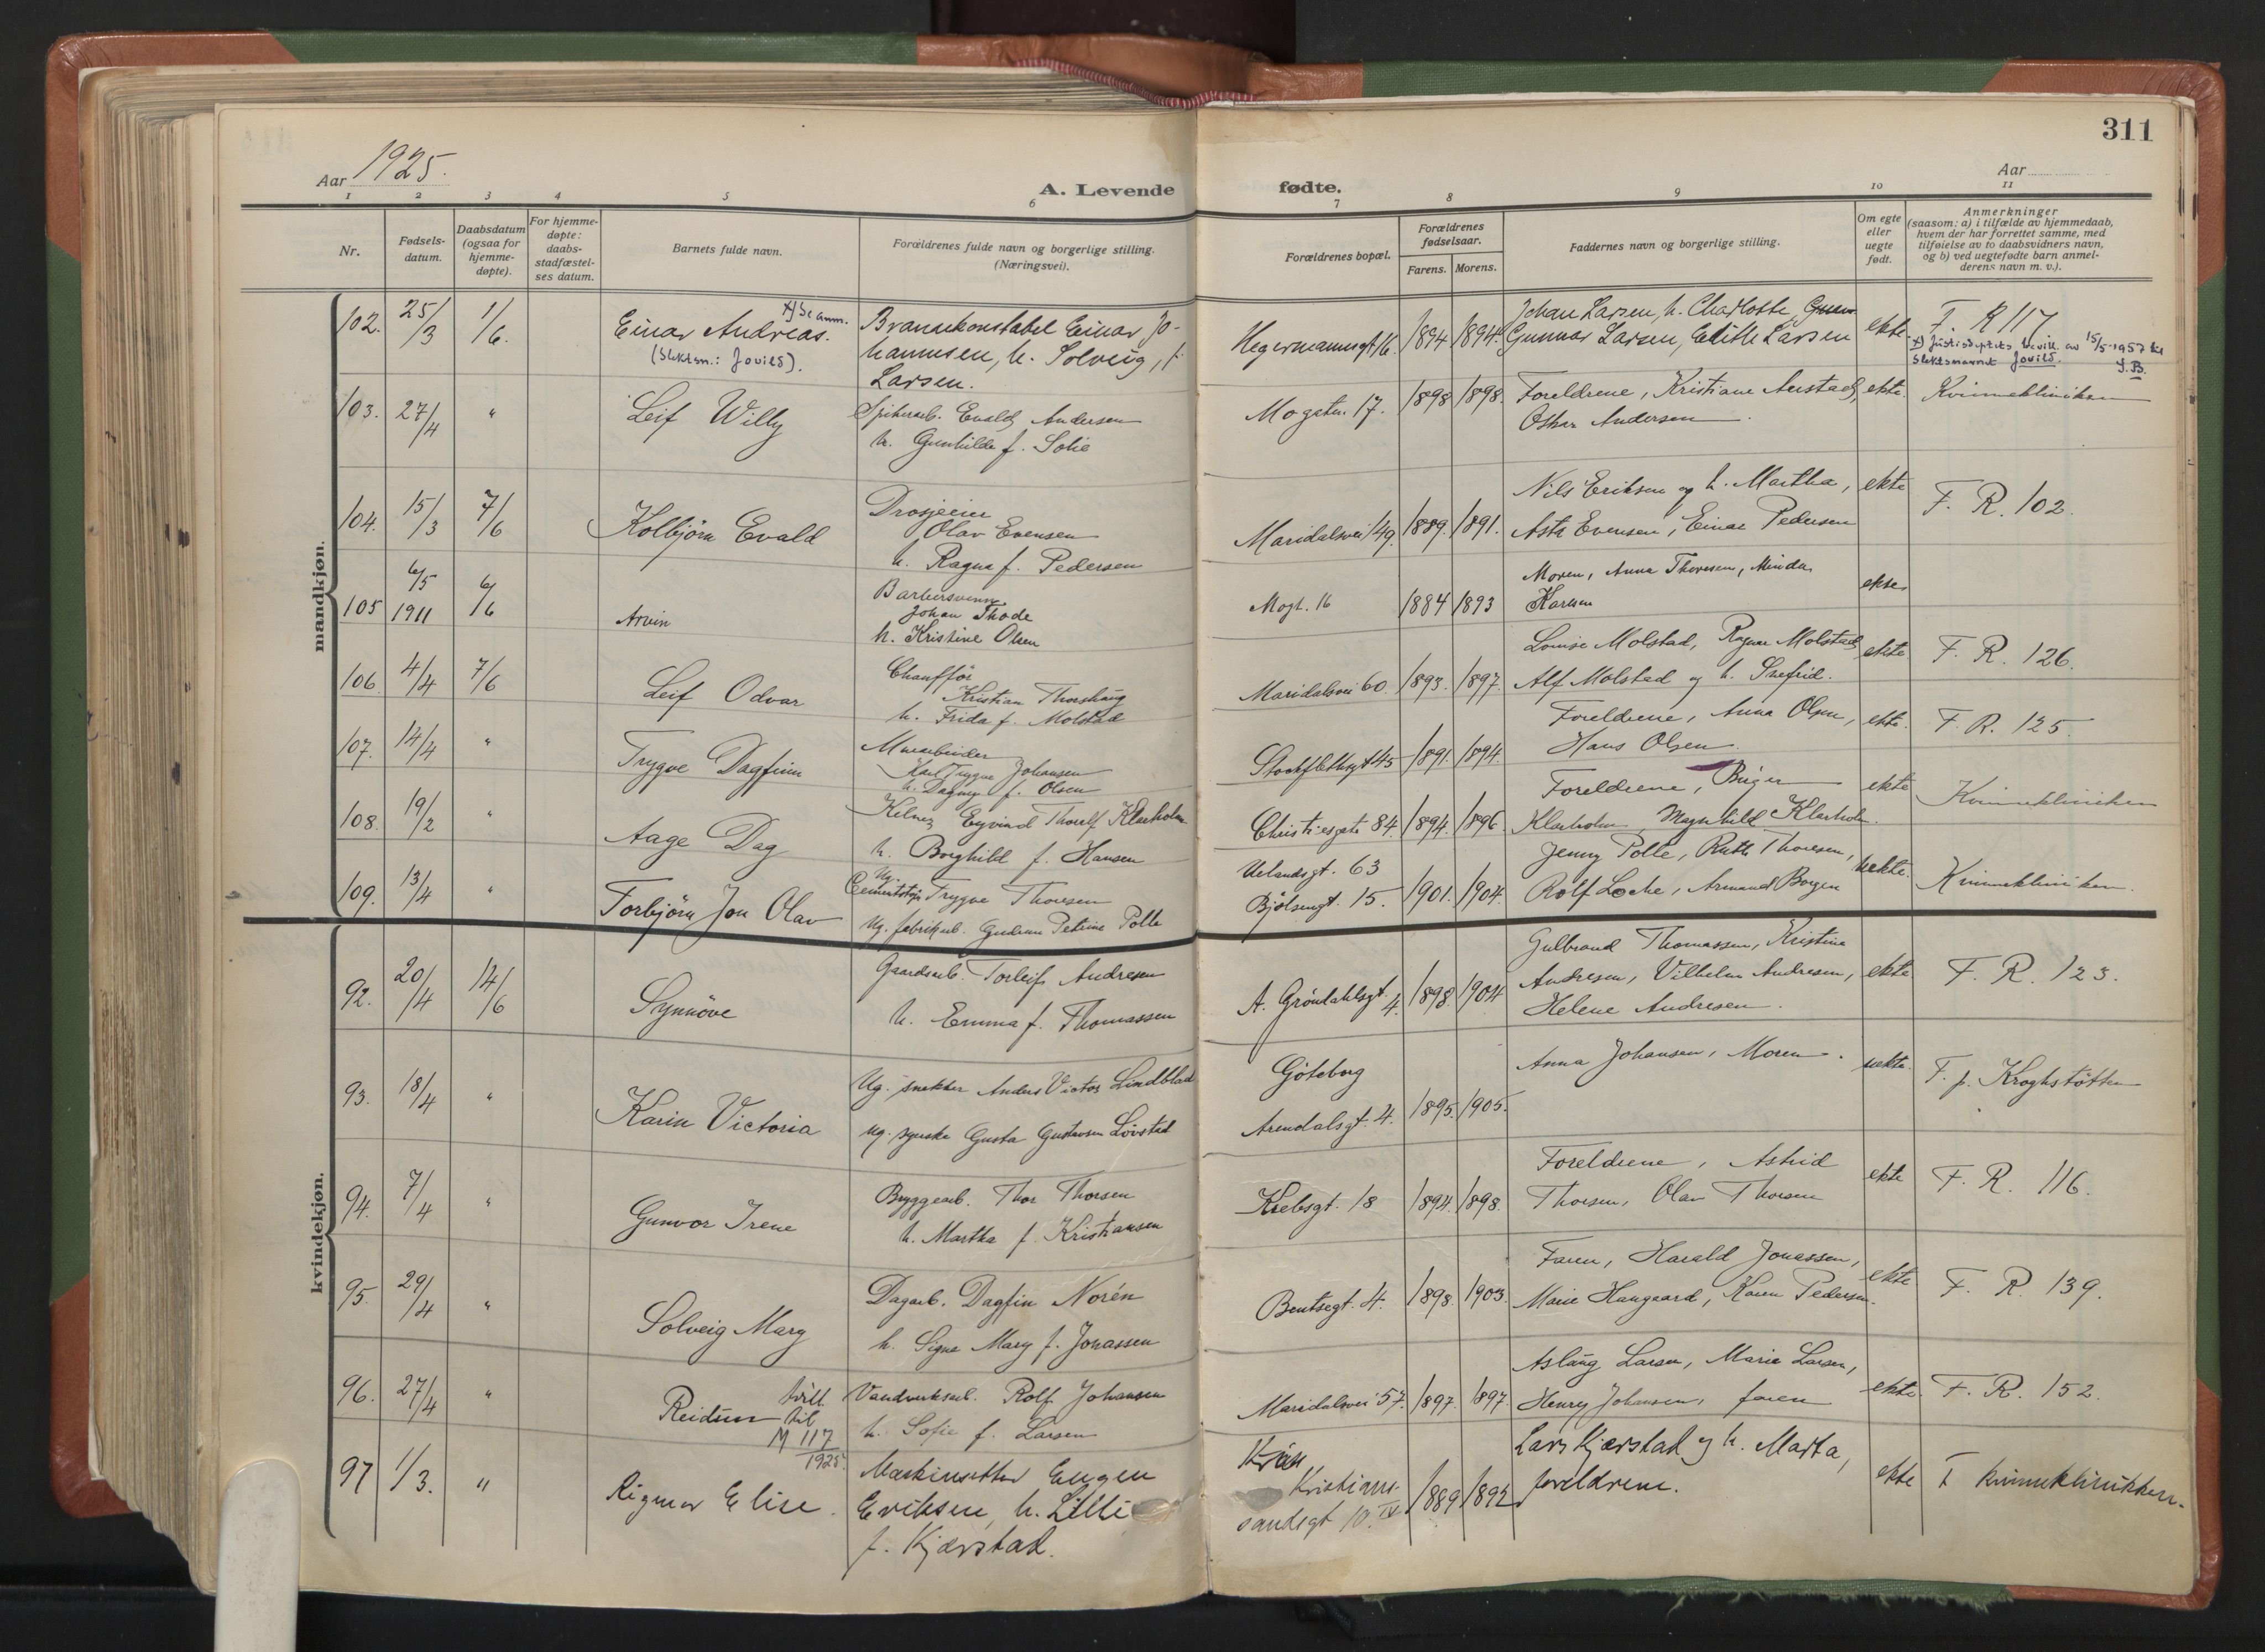 311
Aar 1925.
A. Levende
fødte.
Aar
1 2 3 4 5 6 7 8 9 10 11
Nr.
Fødsels-
datum.
Daabsdatum
(ogsaa for
hjemme-
døpte).
For hjemme-
døpte:
daabs-
stadfæstel-
ses datum.
Barnets fulde navn.
Forældrenes fulde navn og borgerlige stilling.
(Næringsvei).
Forældrenes bopæl.
Forældrenes
fødselsaar.
Farens. Morens.
Faddernes navn og borgerlige stilling.
Om egte
eller
uegte
født.
Anmerkninger
(saasom: a) i tilfælde av hjemmedaab,
hvem der har forrettet samme, med
tilføielse av to daabsvidners navn,
og b) ved uegtefødte barn anmel-
derens navn m. v.).
mandkjøn.
102. 25/3 1/6.
x) Se anm.
Einar Andreas.
(Slektsn.: Jovild).
Brannkonstabel Einar Jo-
hannesen, h. Solveig, f.
Larsen.
Hegermannsgt 16. 1894 1894.
Johan Larsen, h. Charlotte,
Gunnar Larsen, Edith Larsen
ekte.
F R 117
x) Justisdeptets bevill. av 15/5-1957 til
slektsnavnet Jovild.
S.B.
103. 27/4 "
Leif Willy
Spikerarb. Evald Andersen
h. Gunhilda f. Solie
Mogaten 17. 1898 1898.
Foreldrene, Kristiane Aurstad,
Oskar Andersen
ekte.
Kvinneklinikken
104. 15/3 7/6
Kolbjörn Evald
Drosjeeier
Olav Evensen
h. Ragna f. Pedersen
Maridalsvei 149. 1889. 1891.
Nils Eriksen og h. Martha,
Asta Evensen, Einar Pedersen
ekte
F. R. 102.
105 6/5 1911 6/6
Arvin
Barbersvenn
Johan Thode
h. Kristine Olsen
Mogt. 16 1884 1893
Moren, Anna Thoresen, Minda
Karlsen
ekte
106. 4/4 7/6
Leif Odvar
Chaufför
Kristian Thorshaug
h. Frida f. Molstad
Maridalsvei 60. 1893. 1897.
Louise Molstad, Ragna Molstad,
Alf Molstad og h. Snefrid.
ekte.
F. R. 126.
107. 14/4 "
Trygve Dagfinn
Murarbeider
Karl Trygve Johansen
h. Dagny f. Olsen
Stockflethsgt 45 1891. 1894.
Foreldrene, Anna Olsen,
Hans Olsen.
ekte.
F. R. 125.
108. 19/2 "
Aage Dag
Kelner Eyvind Thoralf Klarholm
h. Borghild f. Hansen
Christiesgate 84. 1894. 1896
Foreldrene, Birger
Klarholm, Magnhild Klarholm.
ekte
Kvinneklinikken
109. 13/4 "
Torbjörn Jon Olav
Ug.
Cementstöper Trygve Thoresen
Ug. fabrikarb. Gudrun Petrine Polle
Uelandsgt. 63
Bjölsengt. 15. 1901. 1904.
Jenny Polle, Ruth Thoresen,
Rolf Locke, Armand Borgen
uekte.
Kvinneklinikken.
kvindekjøn.
92. 20/4 14/6
Synnöve
Gaardsarb. Torleif Andresen
h. Emma f. Thomassen
A. Gröndahlsgt. 4. 1898. 1904
Gulbrand Thomassen, Kristina
Andresen, Vilhelm Andresen,
Helene Andresen.
ekte
F. R. 123.
93. 18/4 "
Karin Victoria
Ug. snekker Anders Victor Lindblad
Ug. syerske Gusta Gustavsen Lövstad
Göteborg
Arendalsgt. 4. 1895. 1905.
Anna Johansen, Moren.
uekte.
F. p. Kroghstötten
94. 7/4 "
Gunvor Irene
Bryggearb. Thor Thorsen
h. Martha f. Kristiansen
Krebsgt. 18 1894. 1898.
Foreldrene, Astrid
Thorsen, Olav Thorsen
ekte
F. R. 116.
95. 29/4 "
Solveig Mary
Dagarb. Dagfin Norén
h. Signe Mary f. Jonassen
Bentsegt. 4. 1898. 1903.
Faren, Harald Jonassen,
Marie Haugaard, Karen Pedersen.
ekte
F. R. 139.
96. 27/4 "
Reidun
tvill.
til
M 117
1925.
Vandverksarb. Rolf Johansen
h. Sofie f. Larsen
Maridalsvei 57. 1897. 1897.
Aslaug Larsen, Marie Larsen,
Henry Johansen, faren
ekte.
F. R. 152.
97 1/3. "
Rigmor Elise.
Maskinsetter Eugen
Eriksen, h. Lilli
f. Kjærstad.
Kristians-
sandsgt 10. IV 1889 1892
Lars Kjærstad og h. Marta,
foreldrene.
ekte
F kvinneklinikken.